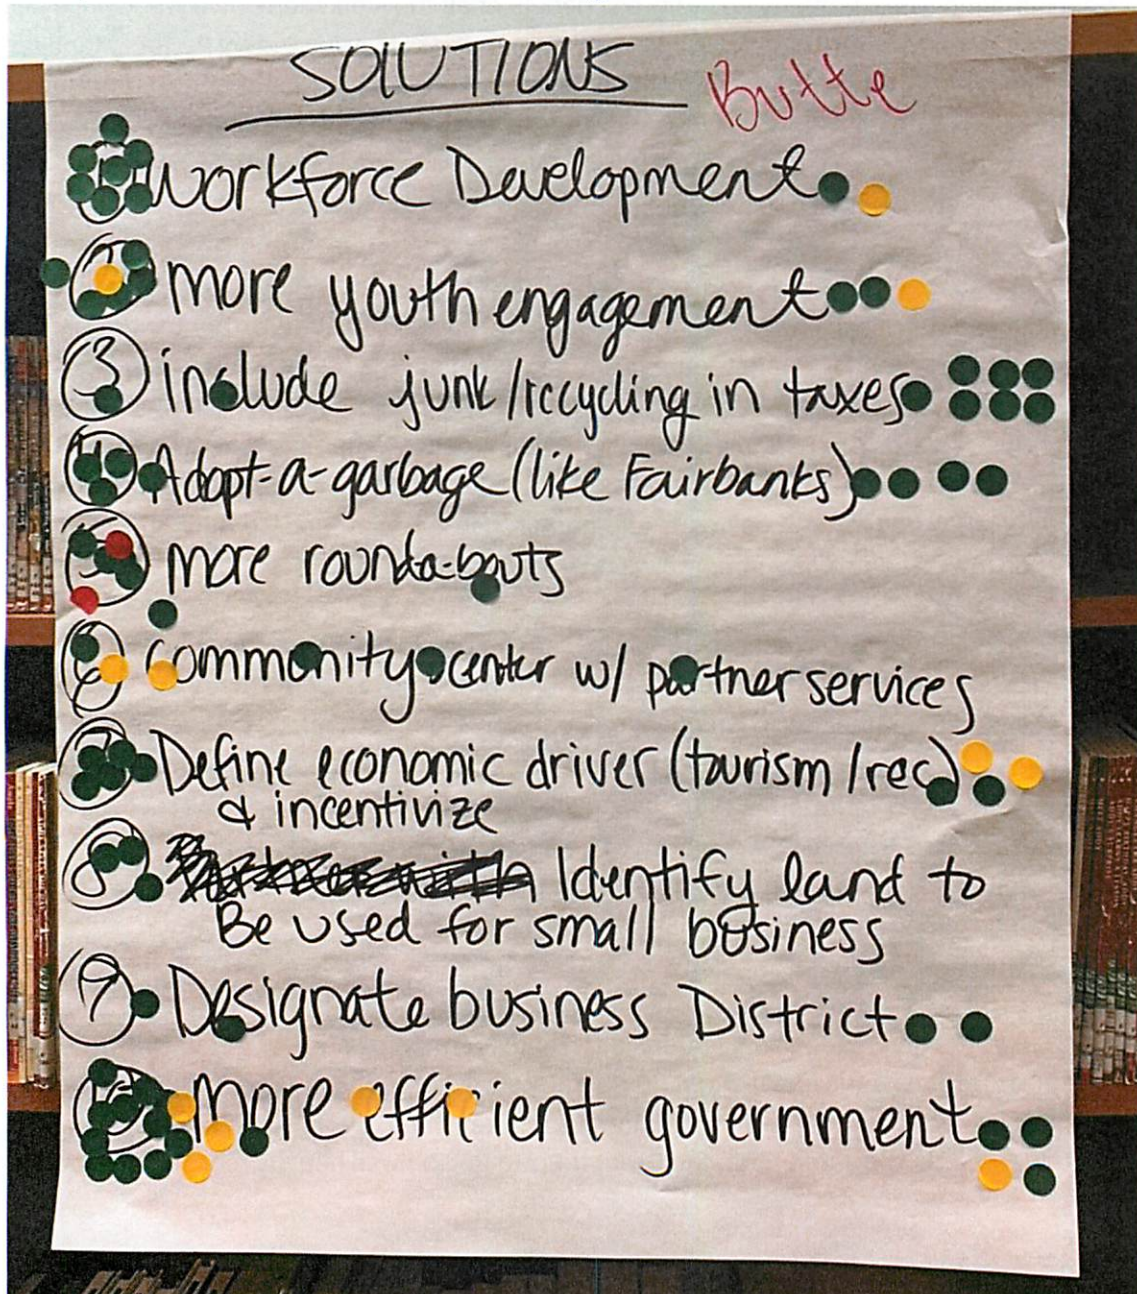 SOLUTIONS Butte
Workforce Development
more youth engagement
3 include junk/recycling in taxes
4 Adopt-a-garbage (like Fairbanks)
more rounda-bouts
6 Community center w/ partner services
7 Define economic driver (tourism/rec)
& incentivize
8 Identify land to
Be used for small business
9 Designate business District
more efficient government